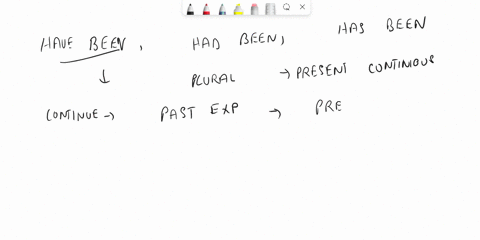 HAVE BEEN, HAD BEEN, HAS BEEN
↓ PLURAL → PRESENT CONTINOUS
CONTINUE → PAST EXP → PRE